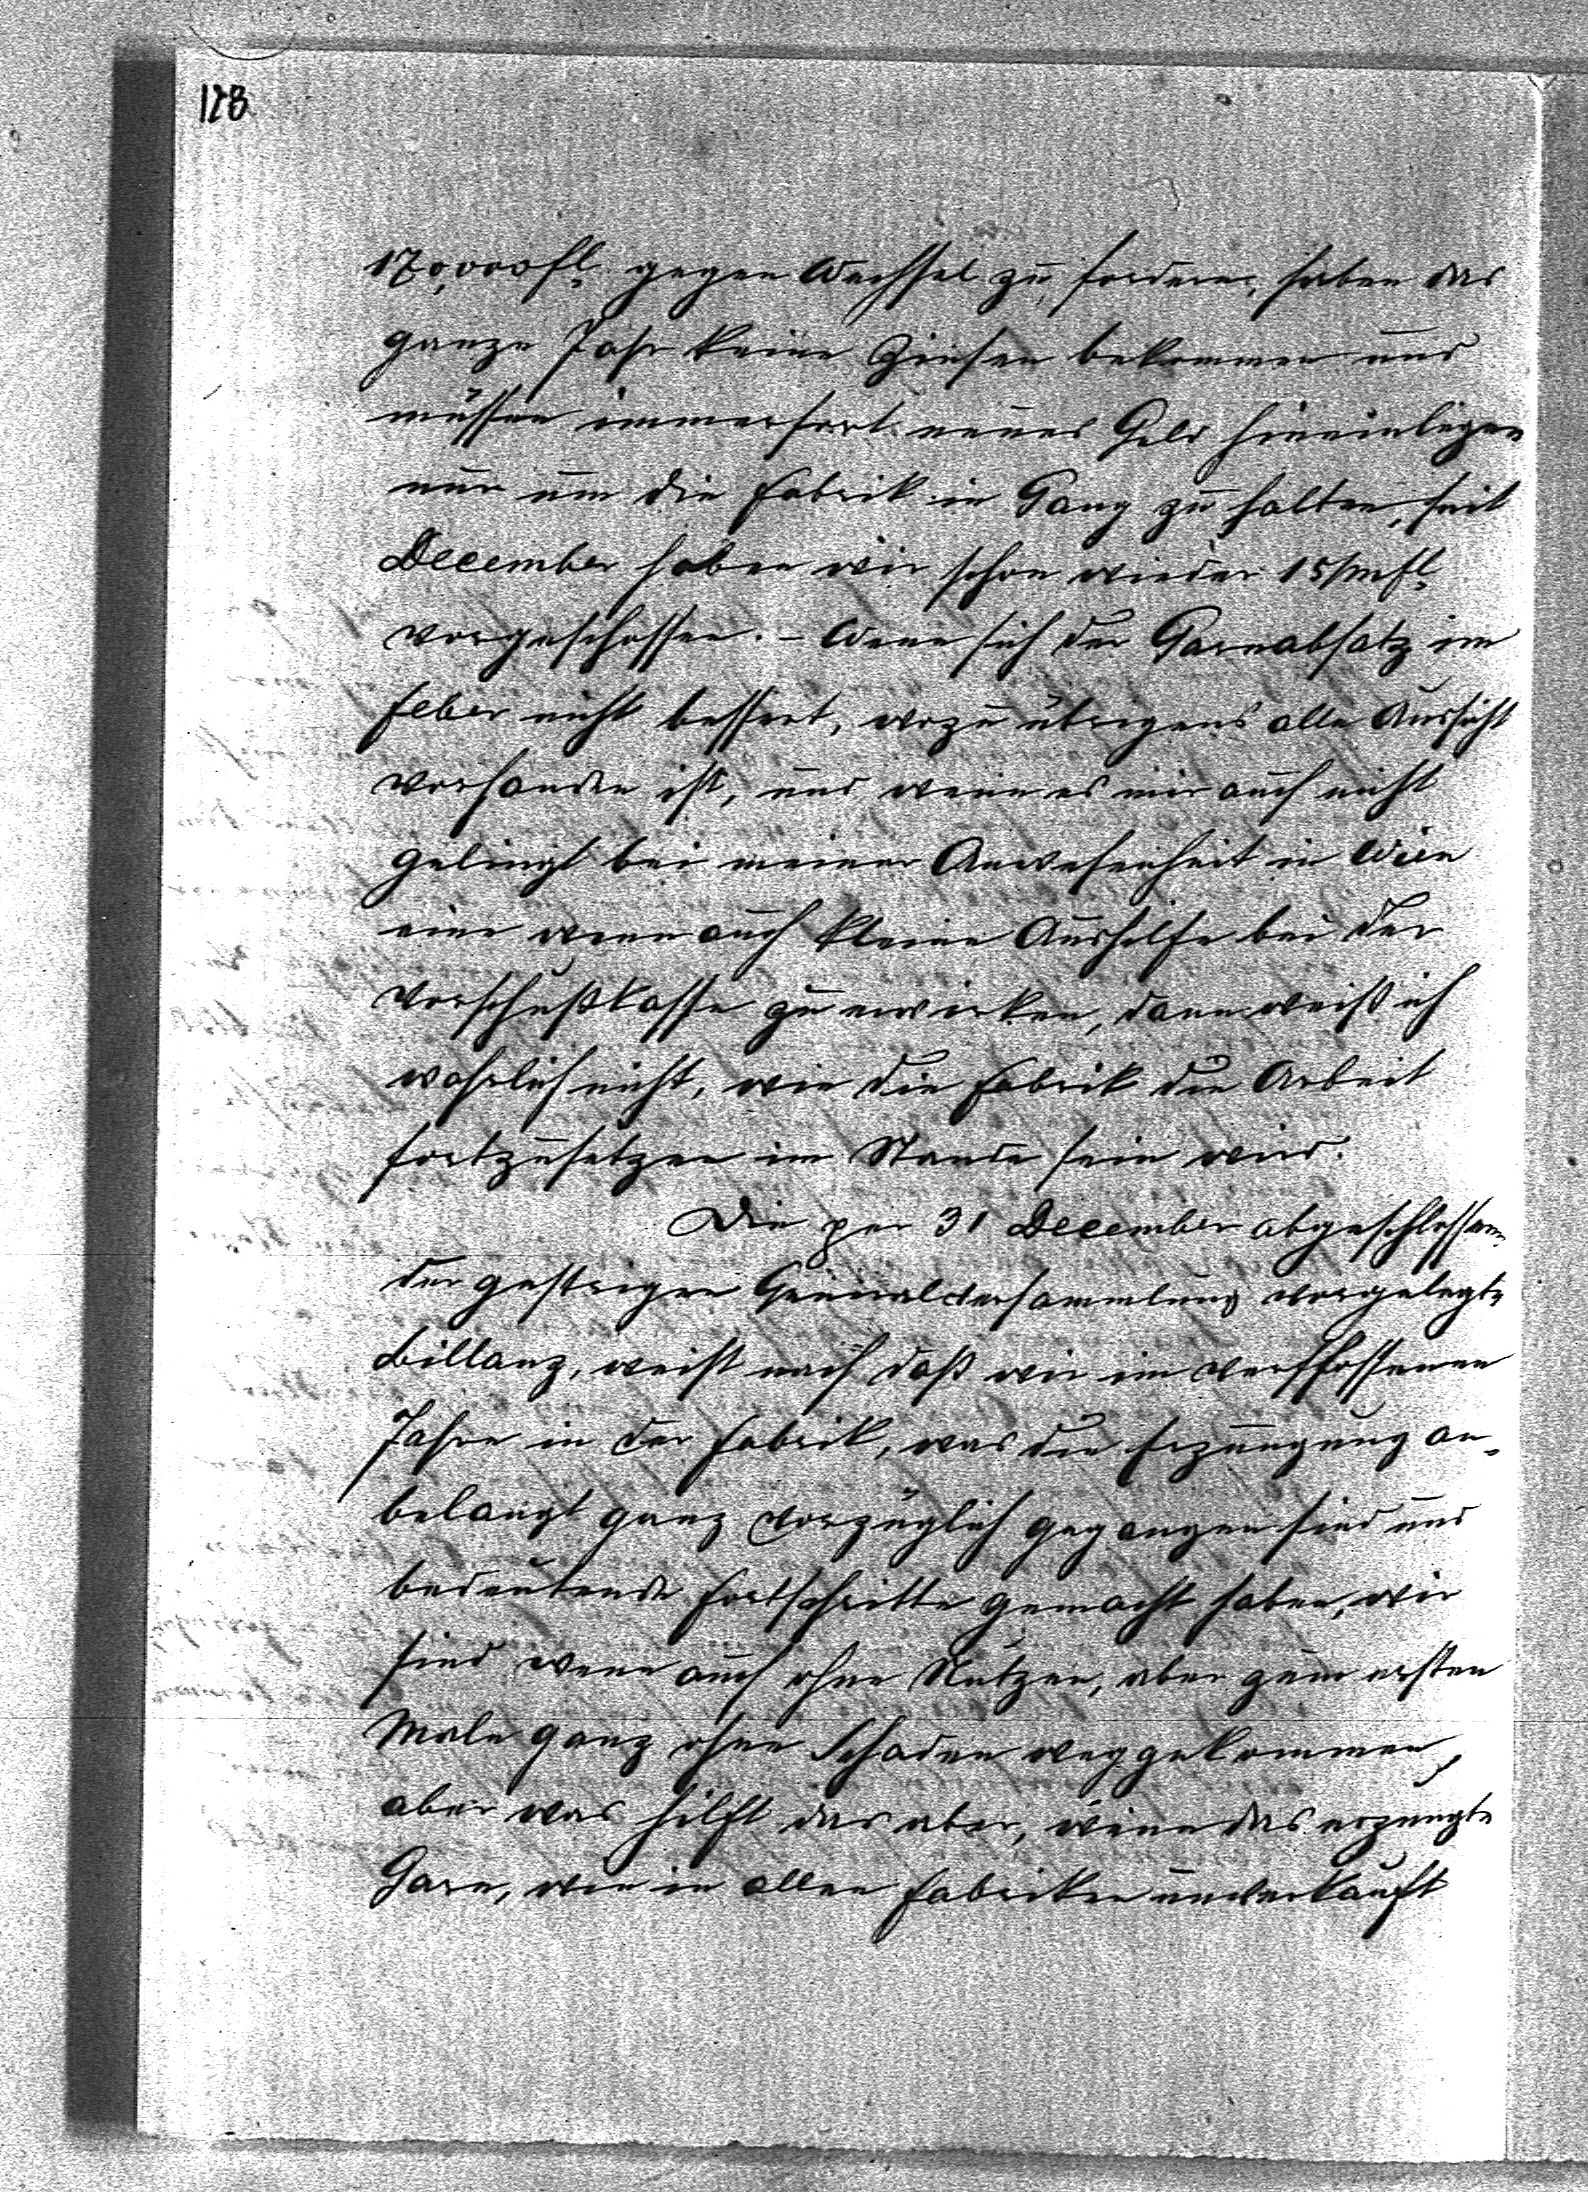 128
170,000 fl. gegen Wechsel zu fordern, haben das
ganze Jahr keine Zinsen bekommen und
müssen immerfort neues Geld hineinlegen
nur um die Fabrik in Gang zu halten, seit
December haben wir schon wieder 15/m fl.
vorgeschossen. – Wenn sich der Garnabsatz im
Feber nicht bessert, wozu übrigens alle Aussicht
vorhanden ist, und wenn es mir auch nicht
gelingt bei meiner Anwesenheit in Wien
eine wenn auch kleine Aushilfe bei der
Vorschußkasse zu erwirken, dann weiß ich
wahrlich nicht, wie die Fabrik die Arbeit
fortzusetzen im Stande sein wird.
Die per 31 December abgeschlossene
der gestrigen Generalversammlung vorgelegte
Billanz, weist nach daß wir im verflossenen
Jahre in der Fabrik, was die Erzeugung an-
belangt ganz vorzüglich gegangen sind und
bedeutende Fortschritte gemacht haben, wir
sind wenn auch ohne Nutzen, aber zum ersten
Male ganz ohne Schaden weggekommen,
aber was hilft das aber, wenn das erzeugte
Garn, wie in allen Fabriken unverkauft